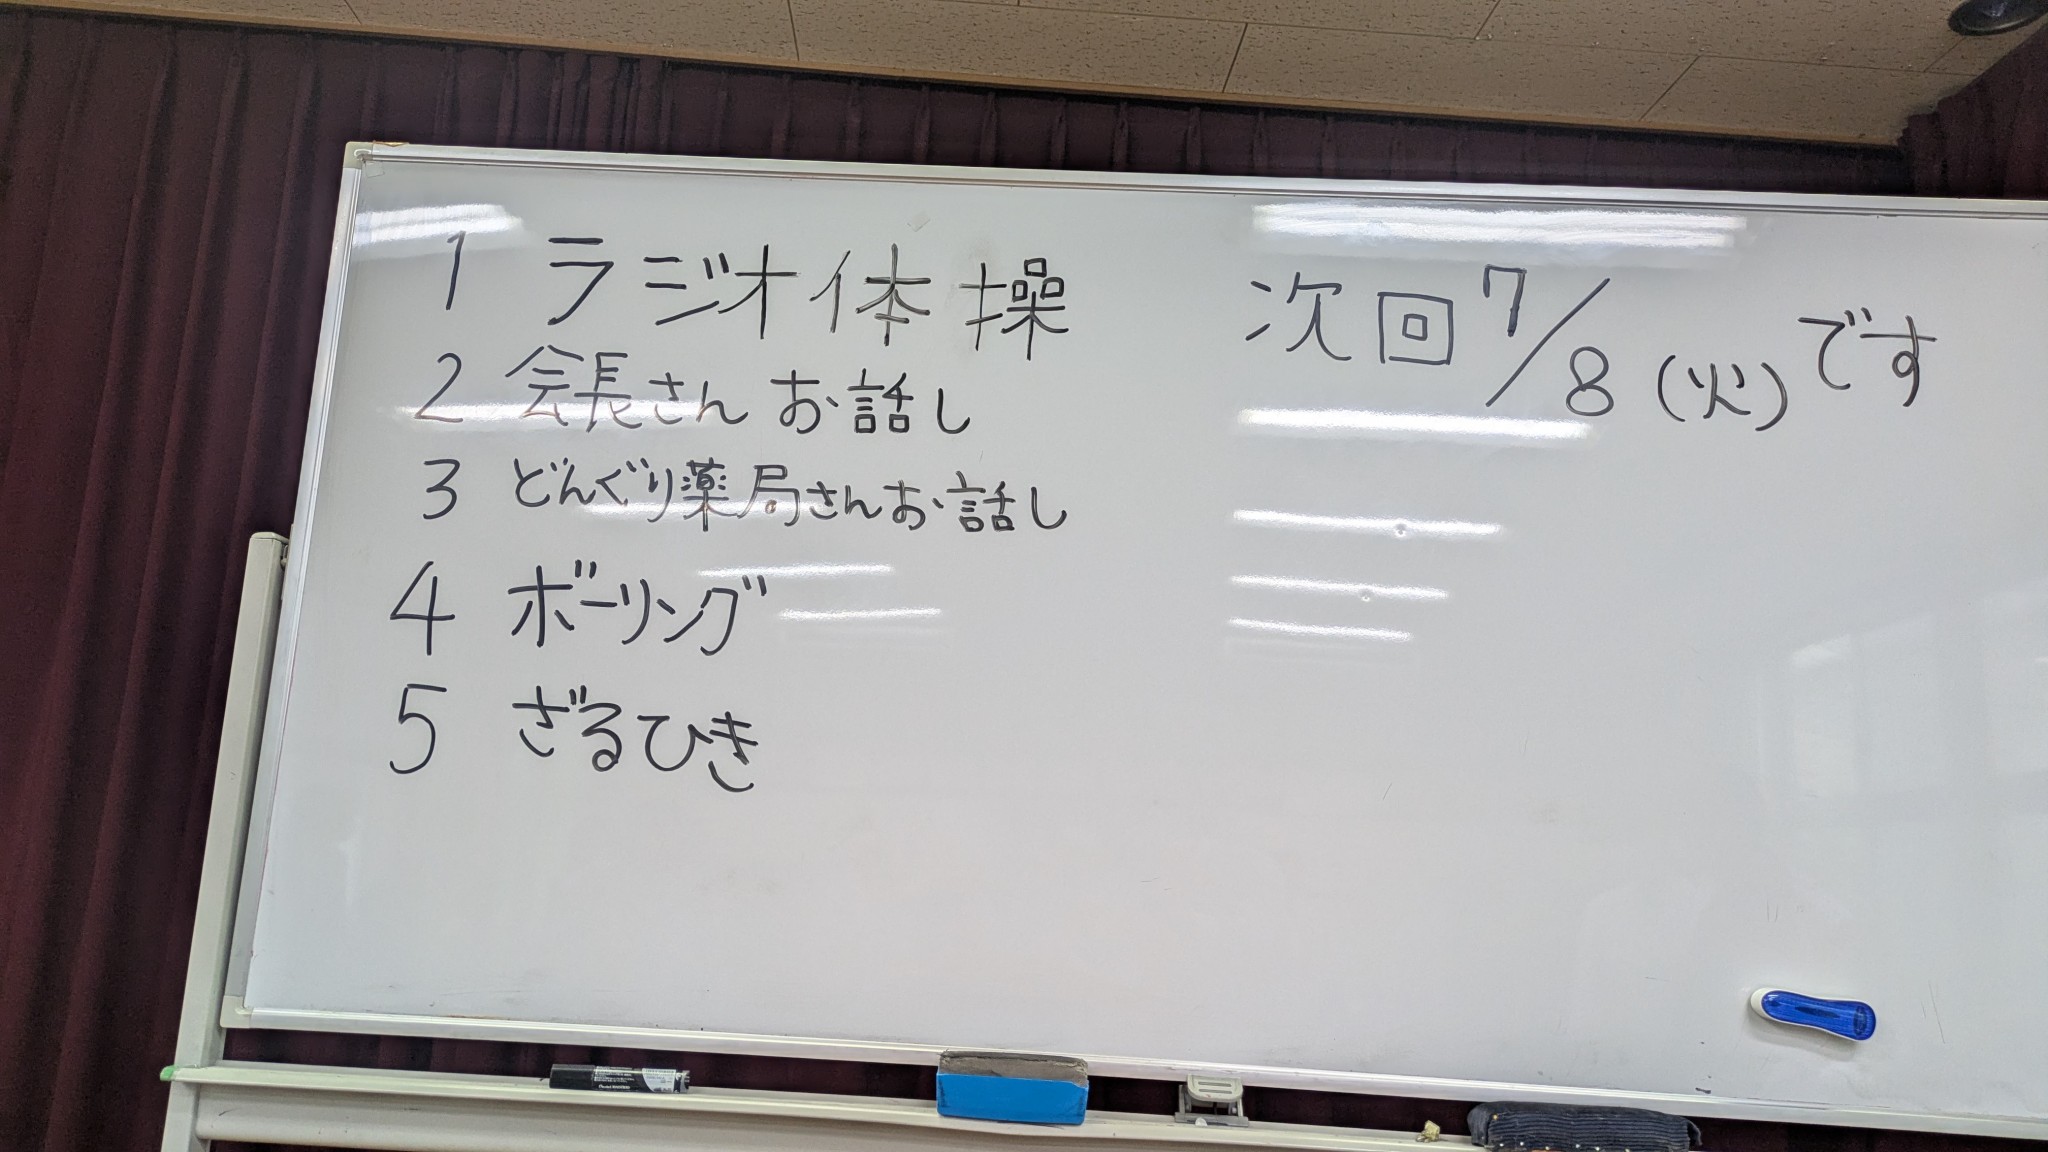 1 ラジオ体操
2 会長さんお話し
3 どんぐり薬局さんお話し
4 ボーリング
5 ざるひき
次回7/8(火)です